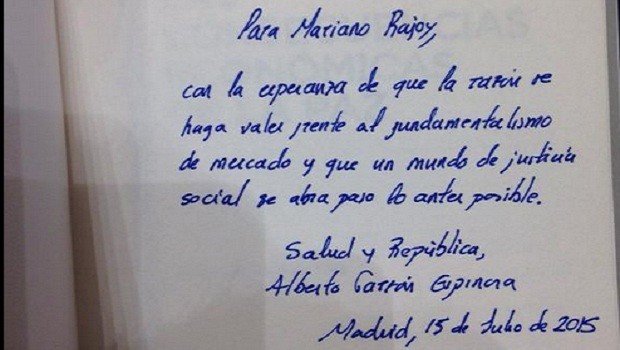 Para Mariano Rajoy,
con la esperanza de que la razón se
haga valer frente al fundamentalismo
de mercado y que un mundo de justicia
social se abra paso lo antes posible.
Salud y República,
Alberto Garzón Espinosa
Madrid, 15 de Julio de 2015